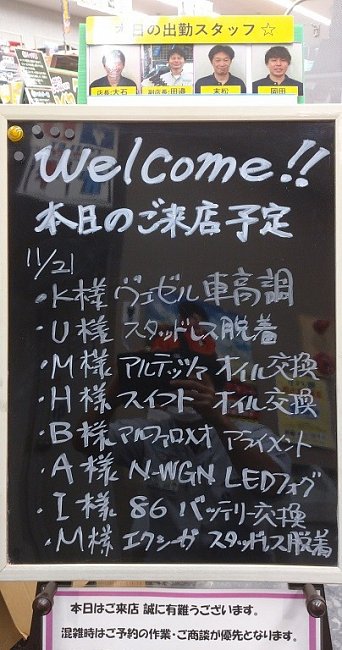 本日の出勤スタッフ☆
店長:大石 副店長:田邉 末松 岡田
Welcome!!
本日のご来店予定
11/21
・K様 ヴェゼル 車高調
・U様 スタッドレス脱着
・M様 アルテッツァ オイル交換
・H様 スイフト オイル交換
・B様 アルファロメオ アライメント
・A様 N-WGN LEDフォグ
・I様 86 バッテリー交換
・M様 エクシーガ スタッドレス脱着
本日はご来店 誠に有難うございます。
混雑時はご予約の作業・ご商談が優先となります。